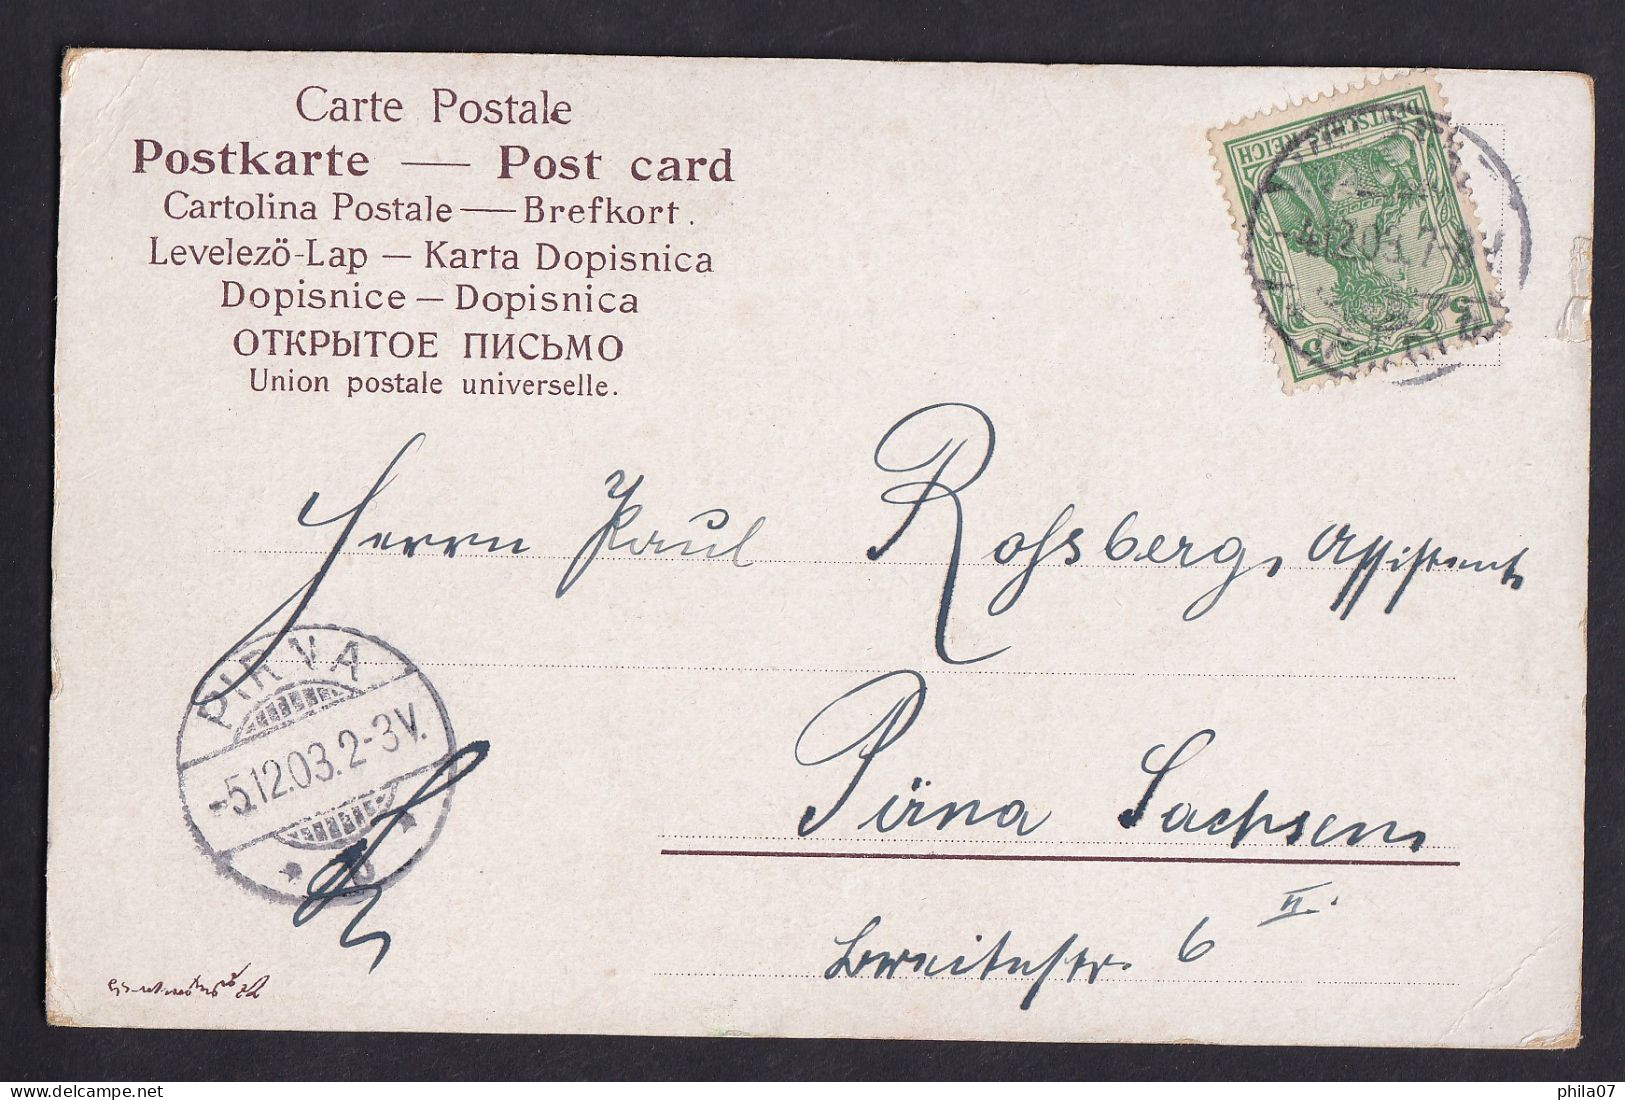 Carte Postale
Postkarte — Post card
Cartolina Postale — Brefkort.
Levelező-Lap — Karta Dopisnica
Dopisnice — Dopisnica
ОТКРЫТОЕ ПИСЬМО
Union postale universelle.
DEUTSCHES REICH
5 5
4.12.03. 7-8
Herrn Paul Rossberg, Assistent
PIRNA
-5.12.03. 2-3V.
Pirna Sachsen
6 II.
phila07